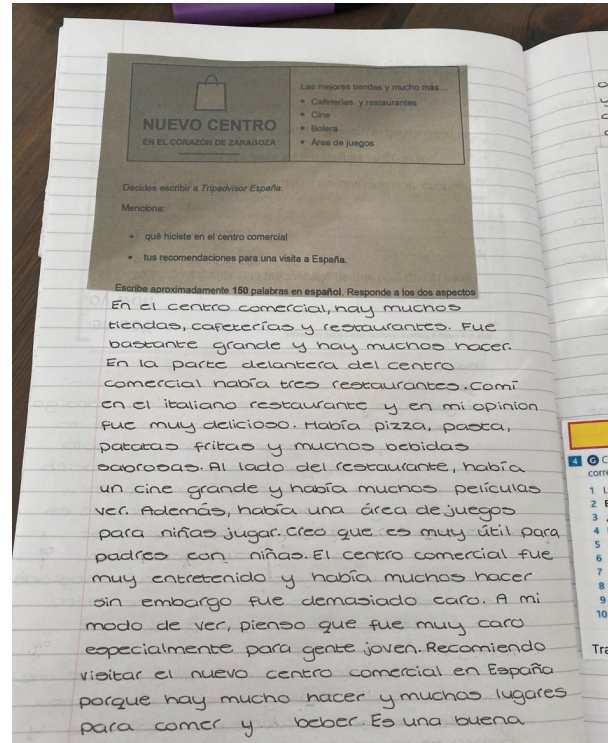 NUEVO CENTRO
EN EL CORAZÓN DE ZARAGOZA
Las mejores tiendas y mucho más...
• Cafeterías y restaurantes
• Cine
• Bolera
• Área de juegos
Decides escribir a Tripadvisor España.
Menciona:
• qué hiciste en el centro comercial
• tus recomendaciones para una visita a España.
Escribe aproximadamente 150 palabras en español. Responde a los dos aspectos
En el centro comercial, hay muchos
tiendas, cafeterías y restaurantes. Fue
bastante grande y hay muchos hacer.
En la parte delantera del centro
comercial había tres restaurantes. Comí
en el italiano restaurante y en mi opinion
fue muy delicioso. Había pizza, pasta,
patatas fritas y muchos bebidas
sabrosas. Al lado del restaurante, había
un cine grande y había muchos películas
ver. Además, había una área de juegos
para niñas jugar. Creo que es muy útil para
padres con niñas. El centro comercial fue
muy entretenido y había muchos hacer
sin embargo fue demasiado caro. A mi
modo de ver, pienso que fue muy caro
especialmente para gente joven. Recomiendo
visitar el nuevo centro comercial en España
porque hay mucho hacer y muchas lugares
para comer y beber. Es una buena
4 G
corr
1
2
3
4
5
6
7
8
9
10
Tra